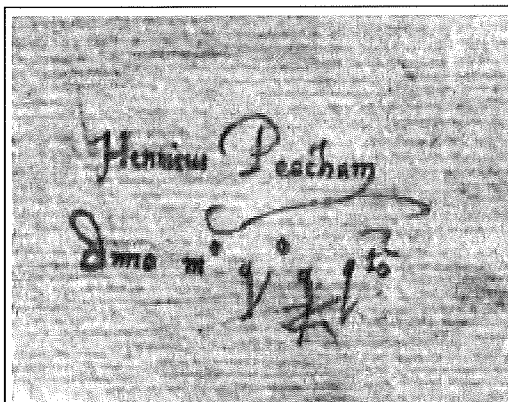 Henricus Peacham
Anno m° q° g q to